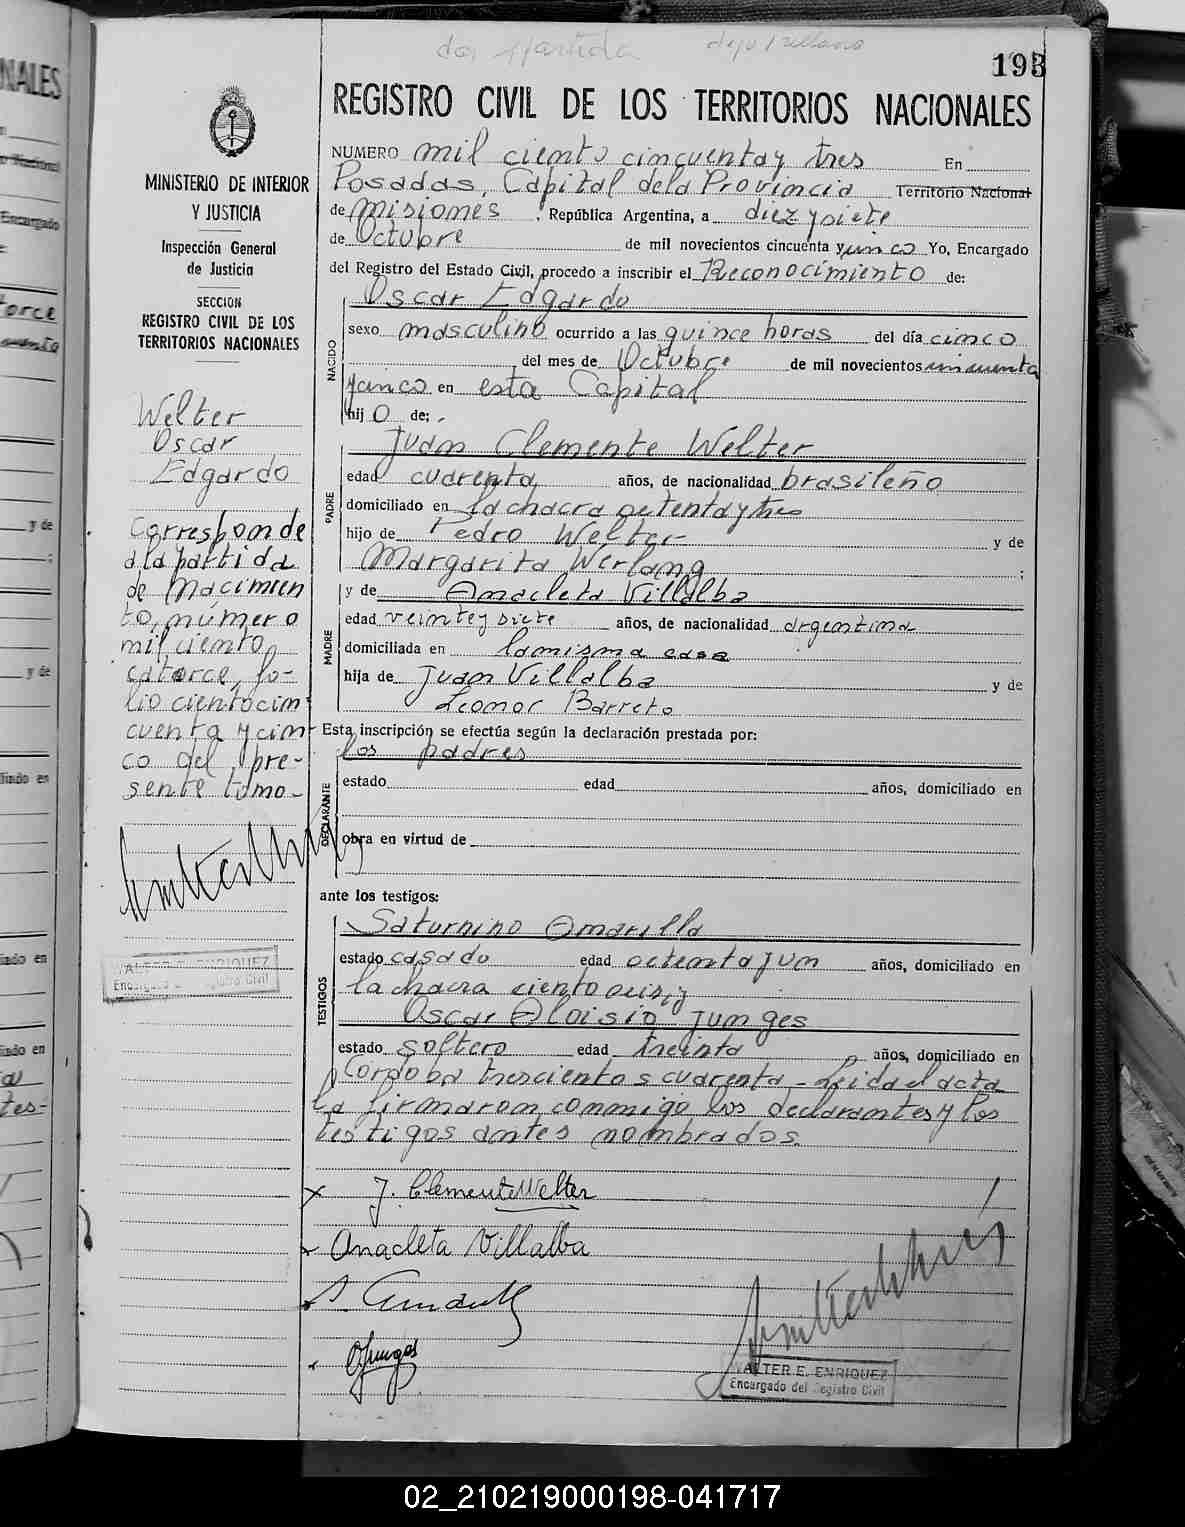 193
REGISTRO CIVIL DE LOS TERRITORIOS NACIONALES
MINISTERIO DE INTERIOR
Y JUSTICIA
Inspección General
de Justicia
SECCION
REGISTRO CIVIL DE LOS
TERRITORIOS NACIONALES
Welter
Oscar
Edgardo
Corresponde
a la partida
de Nacimien
to, número
mil ciento
catorce, fo-
lio ciento cin
cuenta y cin
co del pre-
sente tomo-
WALTER E. ENRIQUEZ
Encargado del Registro Civil
NUMERO mil ciento cincuenta y tres En
Posadas, Capital dela Provincia Territorio Nacional
de misiones, República Argentina, a diez y siete
de Octubre de mil novecientos cincuenta y un co Yo, Encargado
del Registro del Estado Civil, procedo a inscribir el Reconocimiento de:
Oscar Edgardo
NACIDO
sexo masculino ocurrido a las quince horas del día cinco
del mes de Octubre de mil novecientos cincuenta
y unco en esta Capital
hijo de:
Juan Clemente Welter
PADRE
edad cuarenta años, de nacionalidad brasileño
domiciliado en la chacra octenta y tres
hijo de Pedro Welter y de
Margarita Werlang ;
y de Anacleta Villalba
MADRE
edad veinte y siete años, de nacionalidad argentina
domiciliada en la misma casa
hija de Juan Villalba y de
Leonor Barreto
Esta inscripción se efectúa según la declaración prestada por:
los padres
DECLARANTE
estado edad años, domiciliado en
obra en virtud de
ante los testigos:
Saturnino Amarilla
TESTIGOS
estado casado edad octenta y un años, domiciliado en
la chacra ciento seis, y
Oscar Aloisio Junges
estado soltero edad treinta años, domiciliado en
Córdoba trescientos cuarenta - Leida el acta
la firmaron conmigo los declarantes y los
testigos antes nombrados.
J. Clemente Welter
Anacleta Villalba
OJunges
WALTER E. ENRIQUEZ
Encargado del Registro Civil
02_210219000198-041717